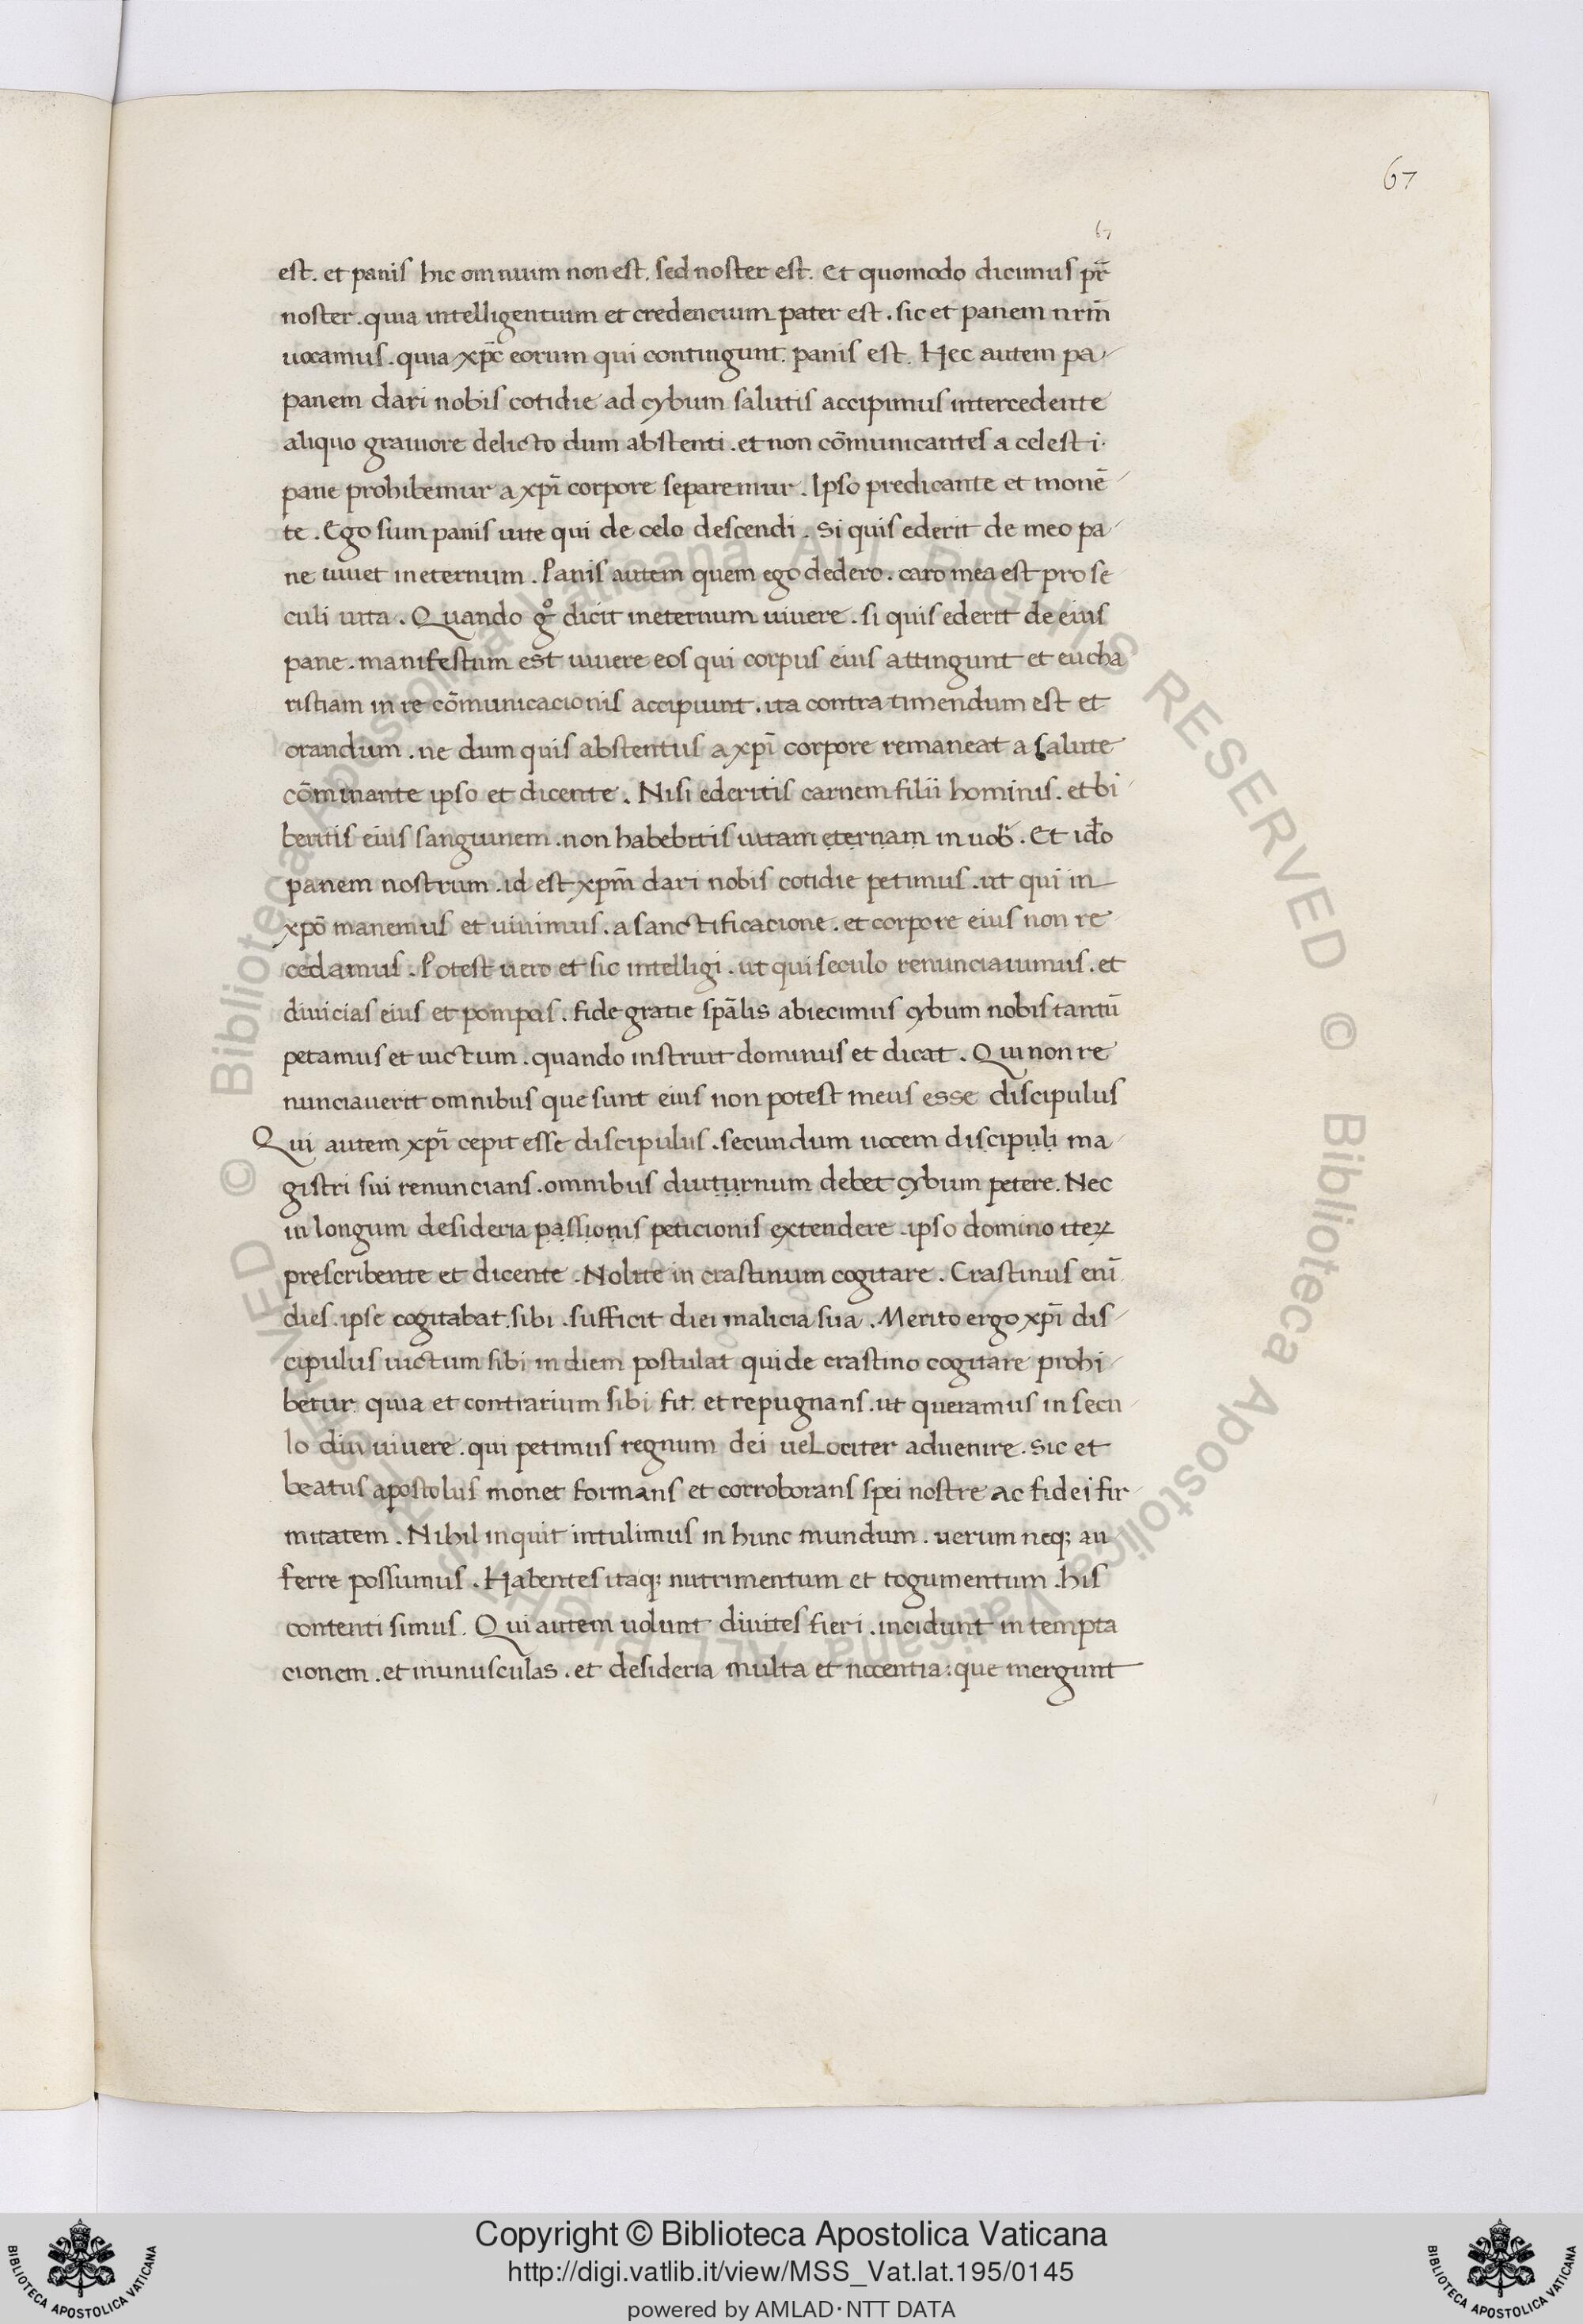 67
67
est. et panis hic omnium non est. sed noster est. Et quomodo dicimus pr̄
noster. quia intelligentium et credencium pater est. sic et panem nrm̄
uocamus. quia xp̄c eorum qui contingunt. panis est. Hec autem pa-
panem dari nobis cotidie ad cybum salutis accipimus intercedente
aliquo grauiore delicto dum abstenti. et non cōmunicantes a celesti.
pane prohibemur a xpī corpore separemur. Ipso predicante et monē-
te. Ego sum panis uite qui de celo descendi. Si quis ederit de meo pa-
ne uiuet in eternum. Panis autem quem ego dedero. caro mea est pro se
culi uita. Quando gº dicit in eternum uiuere. si quis ederit de eius
pane. manifestum est uiuere eos qui corpus eius attingunt et eucha
ristiam in re cōmunicacionis accipiunt. ita contra timendum est et
orandum. ne dum quis abstentus a xpī corpore remaneat a salute
cōminante ipso et dicente. Nisi ederitis carnem filii hominis. et bi-
beritis eius sanguinem. non habebitis uitam eternam in uob̄. Et id̄o
panem nostrum. id est xpm̄ dari nobis cotidie petimus. ut qui in
xpō manemus et uiuimus. a sanctificacione. et corpore eius non re-
cedamus. Potest uero et sic intelligi. ut qui seculo renunciauimus. et
diuicias eius et pompas. fide gratie spālis abiecimus cybum nobis tantū
petamus et uictum. quando instruit dominus et dicat. Qui non re
nunciauerit omnibus que sunt eius non potest meus esse discipulus
Qui autem xpī cepit esse discipulus. secundum uocem discipuli ma-
gistri sui renuncians. omnibus diuturnum debet cybum petere. Nec
in longum desideria passionis peticionis extendere. ipso domino iteꝝ
prescribente et dicente. Nolite in crastinum cogitare. Crastinus enī
dies. ipse cogitabat. sibi. sufficit diei malicia sua. Merito ergo xpī dis-
cipulus uictum sibi in diem postulat qui de crastino cogitare prohi-
betur. quia et contrarium sibi fit. et repugnans. ut queramus in secu-
lo diu uiuere. qui petimus regnum dei uelociter aduenire. Sic et
beatus apostolus monet formans et corroborans spei nostre ac fidei fir-
mitatem. Nihil inquit intulimus in hunc mundum. uerum neq; au
ferre possumus. Habentes itaq; nutrimentum et togumentum. his
contenti simus. Qui autem uolunt diuites fieri. incidunt in tempta
cionem. et inunusculas. et desideria multa et nocentia: que mergunt
© Biblioteca Apostolica Vaticana ALL RIGHTS RESERVED © Biblioteca Apostolica Vaticana ALL RIGHTS RESERVED
Copyright © Biblioteca Apostolica Vaticana
http://digi.vatlib.it/view/MSS_Vat.lat.195/0145
powered by AMLAD·NTT DATA
BIBLIOTECA APOSTOLICA VATICANA
BIBLIOTECA APOSTOLICA VATICANA